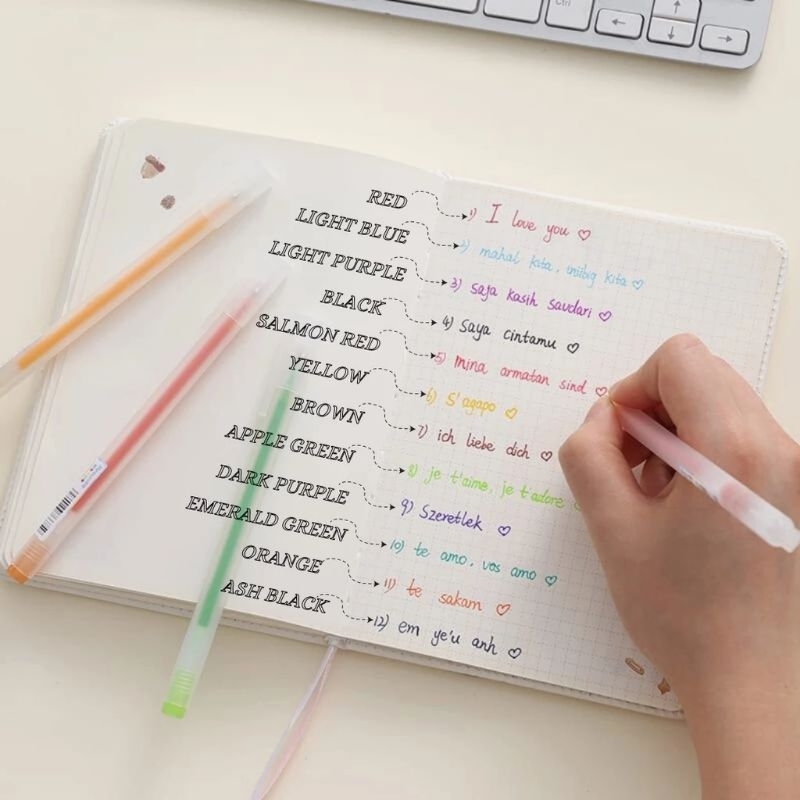 Ctrl
RED
1) I love you ♡
LIGHT BLUE
2) mahal kita, iniibig kita ♡
LIGHT PURPLE
3) saja kasih saudari ♡
BLACK
4) Saya cintamu ♡
SALMON RED
5) mina armatan sind ♡
YELLOW
6) S'agapo ♡
BROWN
7) ich liebe dich ♡
APPLE GREEN
8) je t'aime, je t'adore ♡
DARK PURPLE
9) Szeretlek ♡
EMERALD GREEN
10) te amo, vos amo ♡
ORANGE
11) te sakam ♡
ASH BLACK
12) em ye'u anh ♡